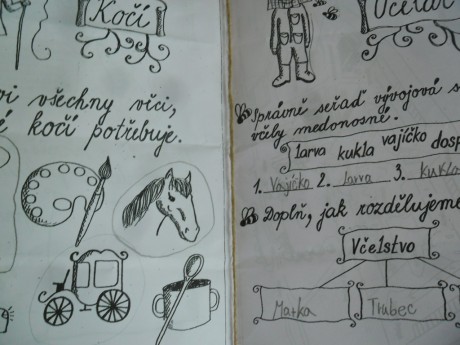 Kočí
všechny věci,
kočí potřebuje.
Včelař
Správně seřaď vývojová s
včely medonosné.
larva kukla vajíčko dosp
1. Vajíčko 2. larva 3. kukla
Doplň, jak rozdělujeme
Včelstvo
Matka
Trubec